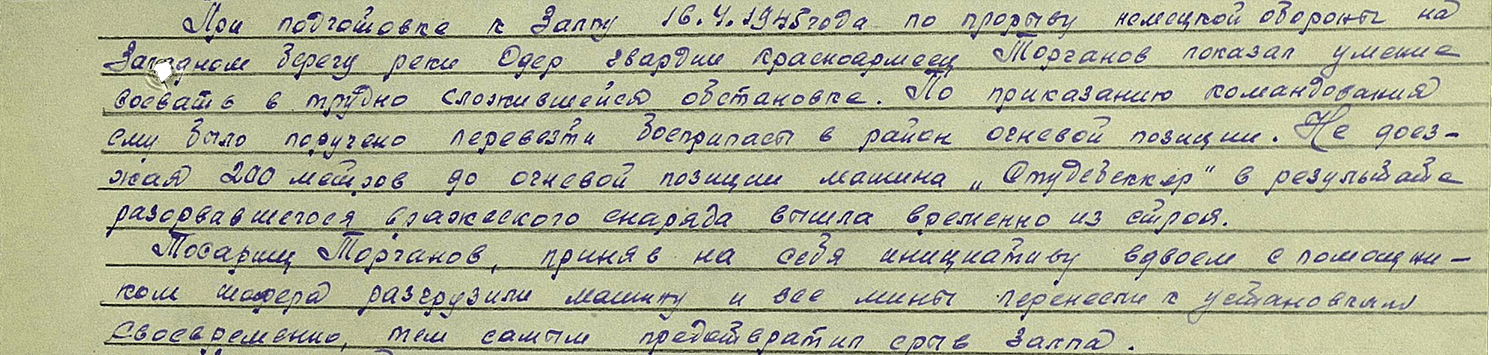 При подготовке к Залпу 16.4.1945 года по прорыву немецкой обороны на
Западном берегу реки Одер гвардии красноармеец Торганов показал умение
воевать в трудно сложившейся обстановке. По приказанию командования
ему было поручено перевезти боеприпасы в район огневой позиции. Не доез-
жая 200 метров до огневой позиции машина „Студебеккер" в результате
разорвавшегося вражеского снаряда вышла временно из строя.
Товарищ Торганов, приняв на себя инициативу вдвоем с помощни-
ком шофера разгрузили машину и все мины перенесли к установкам
своевременно, тем самым предотвратил срыв Залпа.